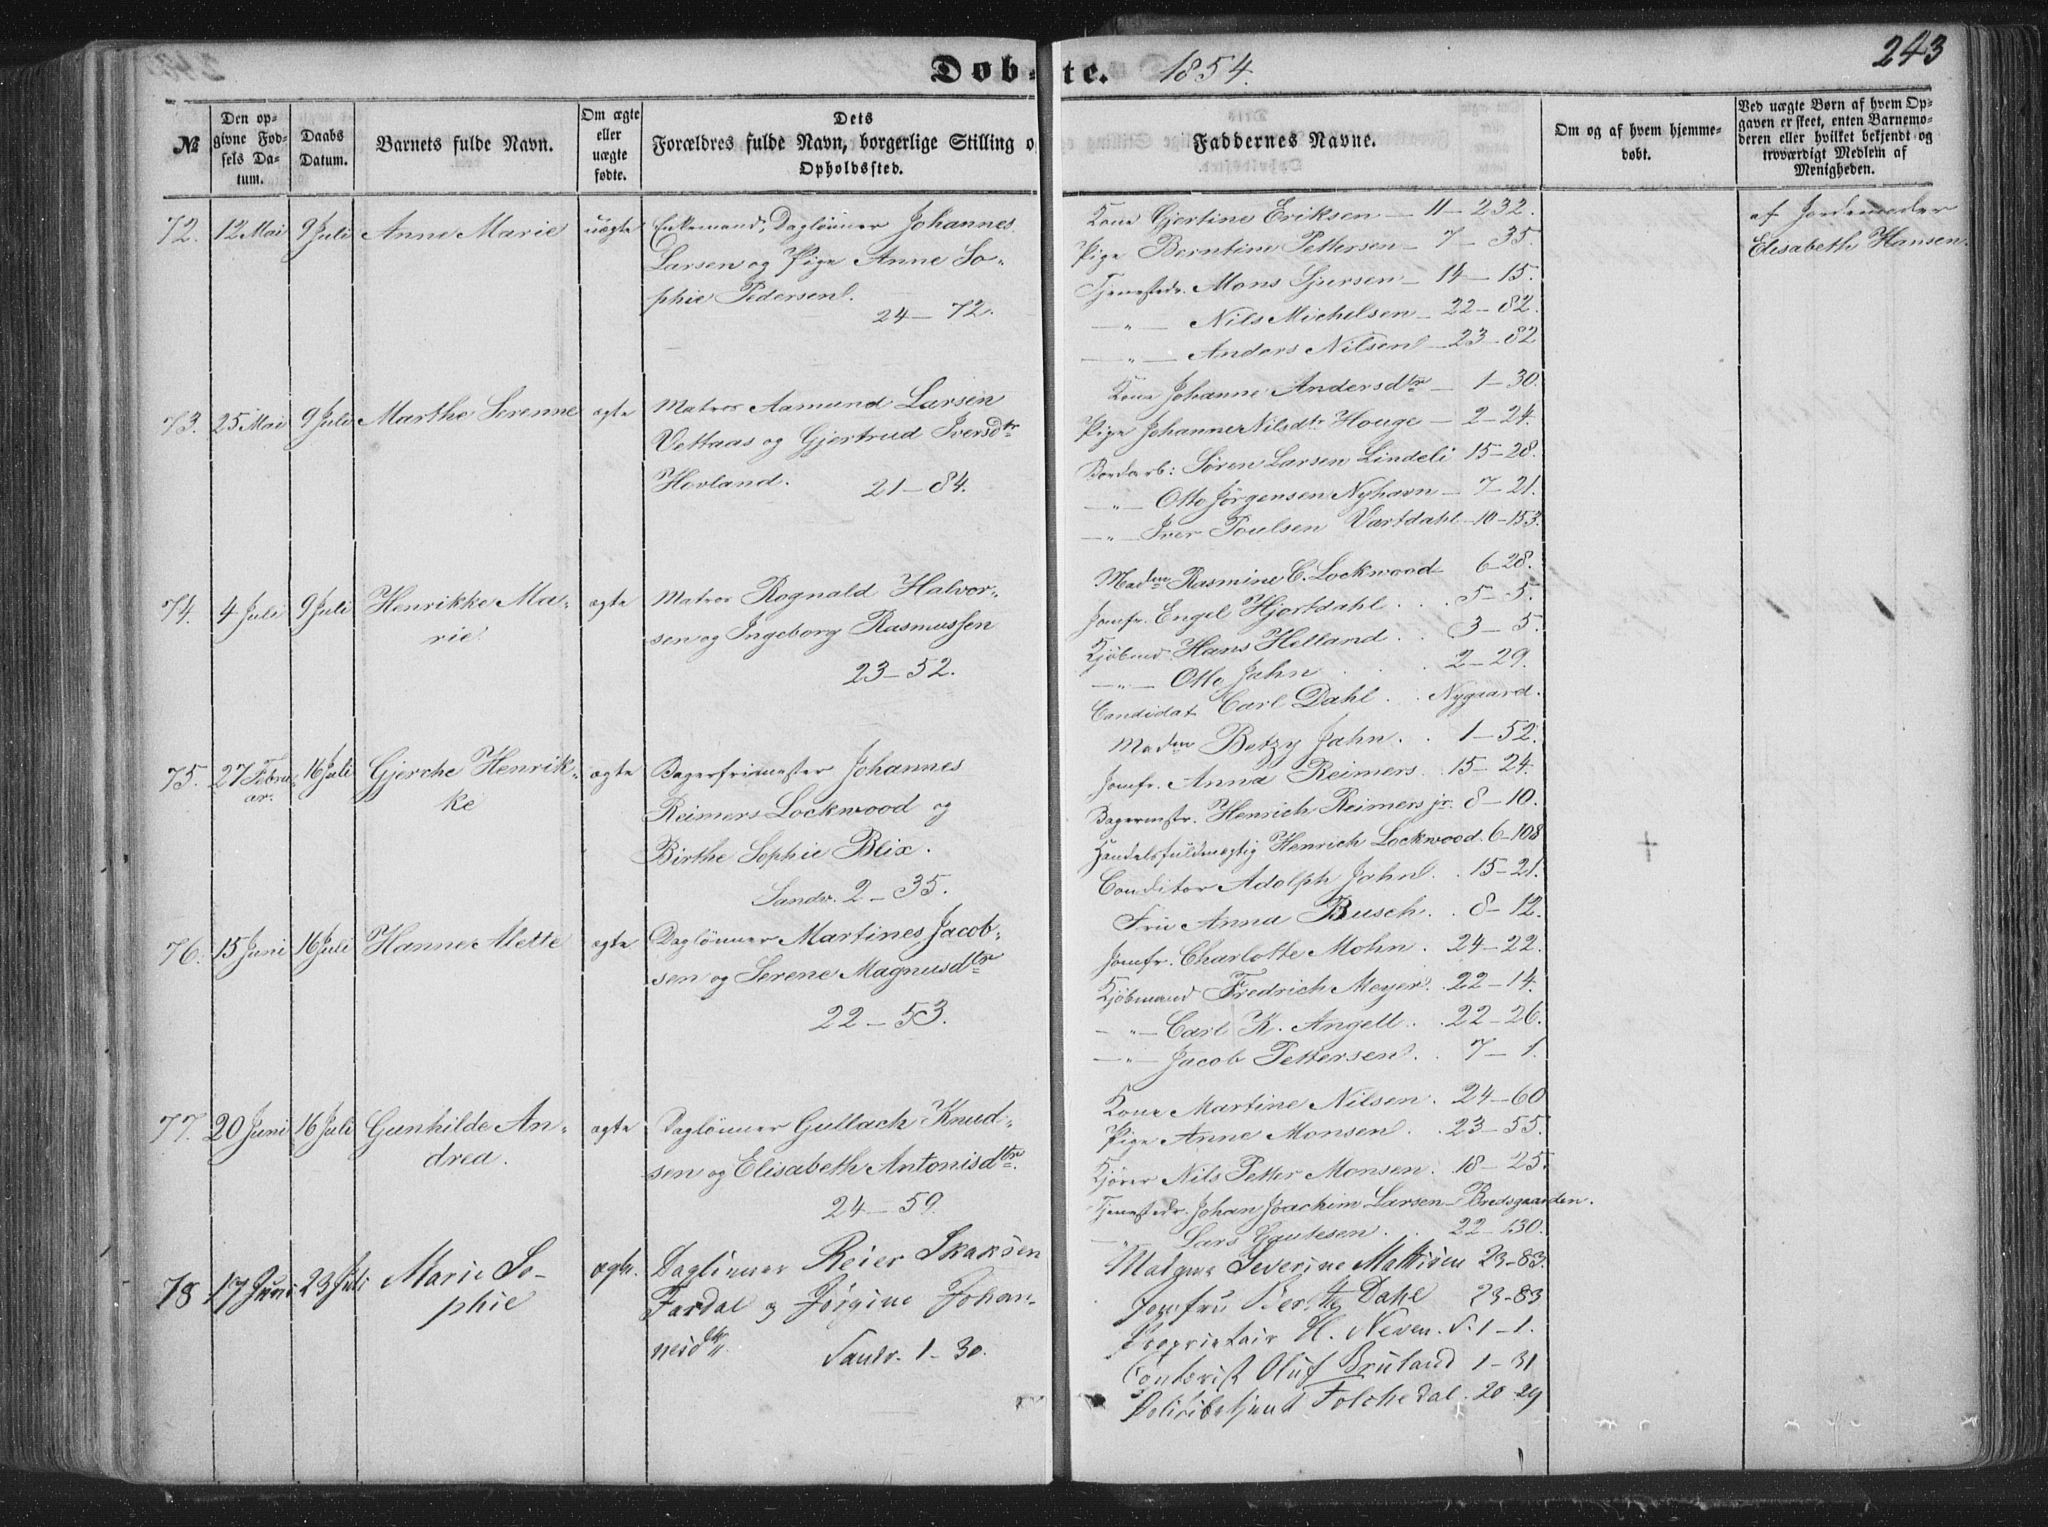 Døb-te. 1854. 243
№
Den op-
givne Fød-
sels Da-
tum.
Daabs
Datum.
Barnets fulde Navn.
Om ægte
eller
uægte
fødte.
Dets
Forældres fulde Navn, borgerlige Stilling o
Opholdssted.
Faddernes Navne.
Om og af hvem hjemme-
døbt.
Ved uægte Børn af hvem Op-
gaven er skeet, enten Barnemo-
deren eller hvilket bekjendt og
troværdigt Medlem af
Menigheden.
72. 12 Mai 9 Juli Anne Marie uægte
Enkemand, Daglønner Johannes
Larsen og Pige Anne So-
phie Pedersen.
24 – 72.
Kone Gjertine Eriksen – 11 – 232.
Pige Berntine Pettersen – 7 – 35.
Tjenestedr. Mons Sjursen – 14 – 15.
– „ – Nils Michelsen – 22 – 82.
– „ – Anders Nilsen – 23 – 82
af Jordemoder
Elisabeth Hansen.
73. 25 Mai 9 Juli Marthe Serenne ægte
Matros Aamund Larsen
Vettaas og Gjertrud Iversdtr
Hovland. 21 – 84.
Kone Johanne Andersdtr – 1 – 30.
Pige Johanne Nilsdtr Houge – 2 – 24.
Bordarb: Søren Larsen Lindeli 15 – 28.
– „ – Otto Jørgensen Nyhavn – 7 – 21.
– „ – Iver Poulsen Vartdahl – 10 – 153.
74. 4 Juli 9 Juli Henrikke Ma-
rie ægte
Matros Rognald Halvor-
sen og Ingeborg Rasmussen
23 – 52.
Madm Rasmine C. Lockwood 6 – 28.
Jomfr. Engel Hjortdahl . . . 5 – 5.
Kjøbmd Hans Helland . . 3 – 5.
– „ – Otto Jahn . . 2 – 29.
Candidat Carl Dahl . . Nygaard.
75. 27 Febru-
ar. 16 Juli Gjerche Henrik-
ke ægte
Bagerfrimester Johannes
Reimers Lockwood og
Birthe Sophie Blix.
Sandv. 2 – 35.
Madm Betzy Jahn . . 1 – 52.
Jomfr. Anna Reimers. 15 – 24.
Bagermstr. Henrich Reimers jr. 8 – 10.
Handelsfuldmægtig Henrich Lockwood. 6 – 108
Conditor Adolph Jahn. . 15 – 21.
+
76. 15 Juni 16 Juli Hanne Alette ægte
Daglønner Martines Jacob-
sen og Serene Magnusdtr
22 – 53.
Fru Anna Busch. . 8 – 12.
Jomfr. Charlotte Mohn . 24 – 22.
Kjøbmand Fredrich Meyer. . 22 – 14.
– „ – Carl K. Angell . . 22 – 26.
– „ – Jacob Pettersen. . 7 – 1.
77. 20 Juni 16 Juli Gunhilde An-
drea. ægte
Daglønner Gullach Knud-
sen og Elisabeth Antonisdtr.
24 – 59.
Kone Martine Nilsen . 24 – 60
Pige Anne Monsen. . . 23 – 55.
Kjører Nils Petter Monsen. 18 – 25.
Tjenestedr. Johan Joachim Larsen – Bredsgaarden.
– „ – Lars Gautesen. . . 22 – 130.
78 17 Juni 23 Juli Marie So-
phie ægte.
Daglönner Reier Skaksen
Fardal og Jørgine Johan-
nesdtr. Sandv. 1 – 30.
Severine Mathisen 23 – 83.
Jomfru Berthe Dahl 23 – 83
Proprietair H. Neven. S. 1 – 1.
Contorist Oluf Bruland 1 – 31
Politibetjent Folchedal. 20 – 29